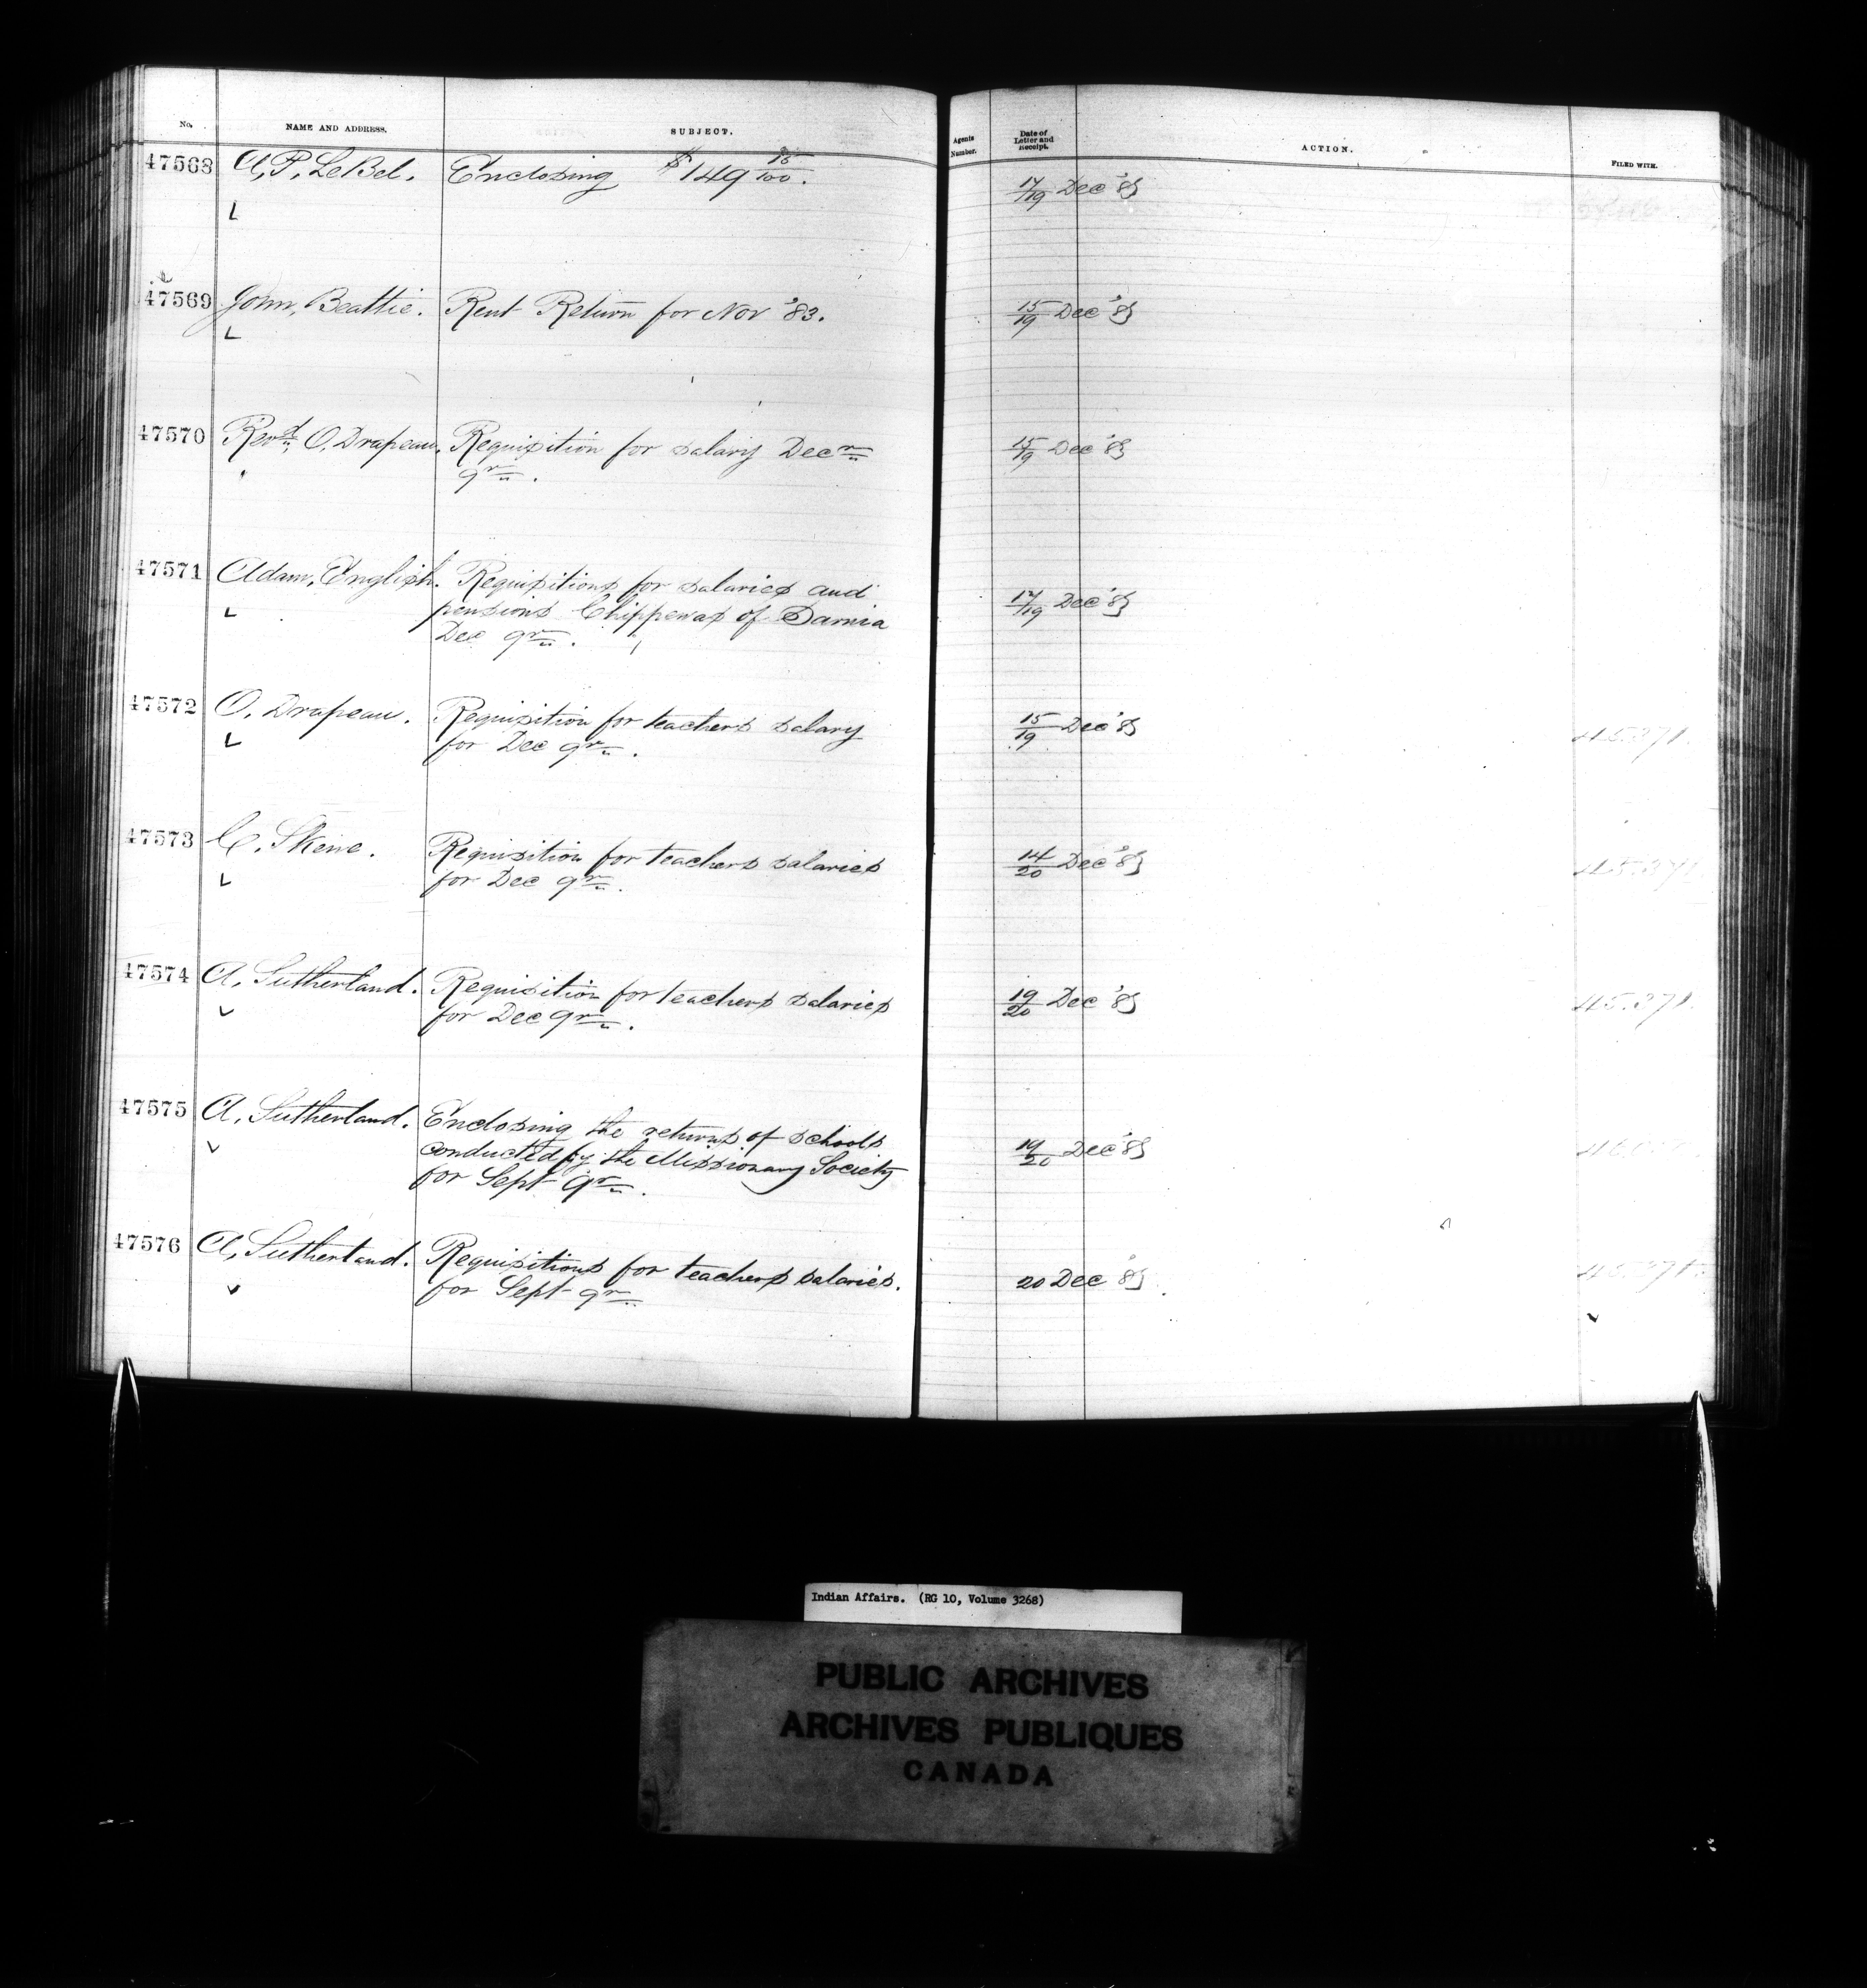 No. NAME AND ADDRESS. SUBJECT. Agents Number. Date of Letter and Receipt. ACTION. FILED WITH.
47568 A, P, LeBel. Enclosing $149 15/100. 17/19 Dec '83
47569 John, Beattie. Rent Return for Nov '83. 15/19 Dec '83
47570 Revd. O, Drapeau. Requisition for salary Decr 15/19 Dec '83
qr.
47571 Adam, English. Requisitions for salaries and
pensions Chippewas of Sarnia 17/19 Dec '83
Dec qr.
47572 O. Drapeau. Requisition for teachers salary 15/19 Dec '83
for Dec qr. 45.371.
47573 C. Skene. Requisition for teachers salaries 14/20 Dec '83
for Dec qr. 45.371
47574 A, Sutherland. Requisition for teachers salaries 19/20 Dec '83 45.371.
for Dec qr.
47575 A, Sutherland. Enclosing the returns of schools
conducted by the Missionary Society 19/20 Dec '83
for Sept qr.
47576 A, Sutherland. Requisitions for teachers salaries. 20 Dec '83 45.371.
for Sept qr
Indian Affairs. (RG 10, Volume 3268)
PUBLIC ARCHIVES
ARCHIVES PUBLIQUES
CANADA